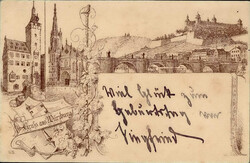 Viel Glück zum
Geburtstag
Siegfried
Gruss aus Würzburg